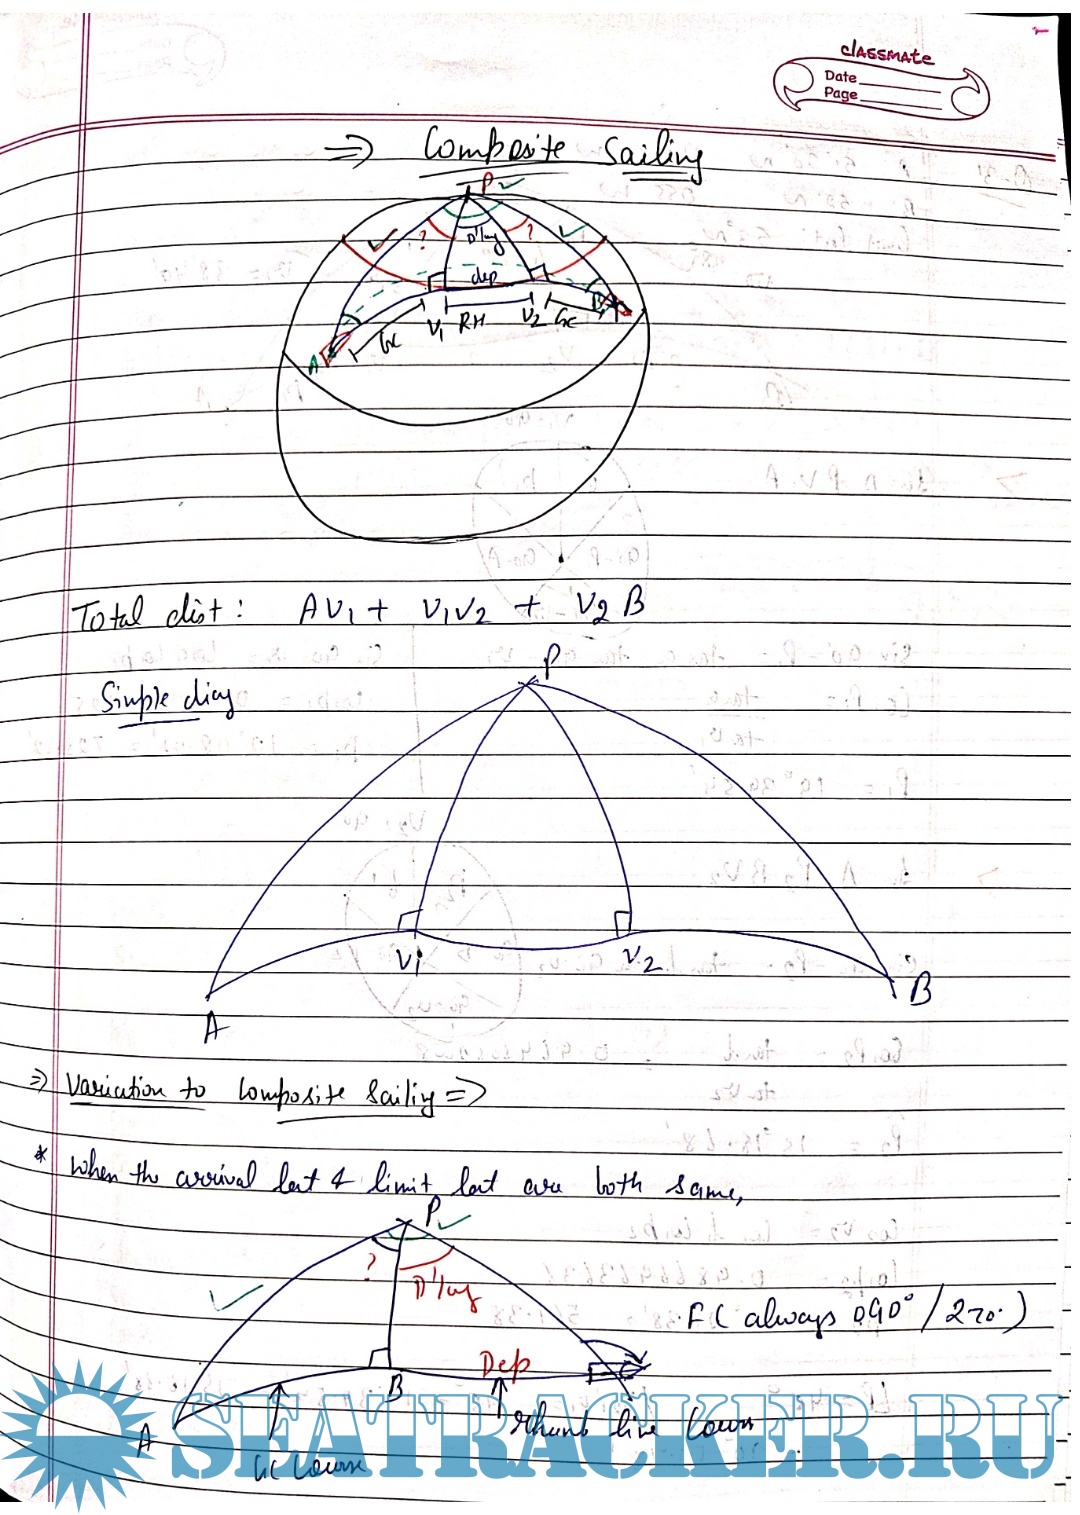 classmate
Date
Page
⇒ Composite Sailing
P ✓
✓ ? D'long ? ✓
dep
A GC V1 RH V2 GC B
Total dist : AV1 + V1V2 + V2 B
P
Simple diag
V1 V2
B
A
⇒ Variation to Composite Sailing ⇒
* When the arrival lat & limit lat are both same,
P ✓
? D'long
✓
F ( always 090° / 270° )
Dep
B
A
Rhumb line Course
GC Course
SEATRACKER.RU